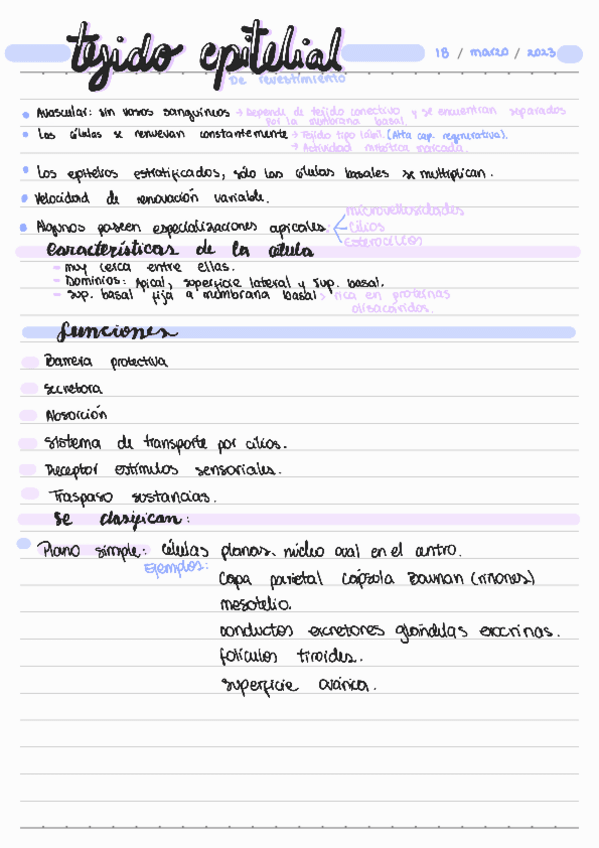 tejido epitelial
18 / marzo / 2023
De revestimiento
• Avascular: sin vasos sanguíneos → Depende de tejido conectivo y se encuentran separados
por la membrana basal.
• Las células se renuevan constantemente → Tejido tipo lábil. (Alta cap. regenerativa).
→ Actividad mitótica marcada.
• Los epitelios estratificados, sólo las células basales se multiplican.
• Velocidad de renovación variable.
• Algunos poseen especializaciones apicales:
microvellosidades
cilios
estereocilios
Características de la célula
- muy cerca entre ellas.
- Dominios: Apical, superficie lateral y sup. basal.
- Sup. basal fija a membrana basal > rica en proteínas
olisacáridos.
funciones
Barrera protectiva
Secretora
Absorción
Sistema de transporte por cilios.
Receptor estímulos sensoriales.
Traspaso sustancias.
Se clasifican:
Plano simple: células planas. núcleo oval en el centro.
Ejemplos:
Capa parietal cápsula Bowman (riñones)
mesotelio.
conductos excretores glándulas exocrinas.
folículos tiroides.
superficie ovárica.